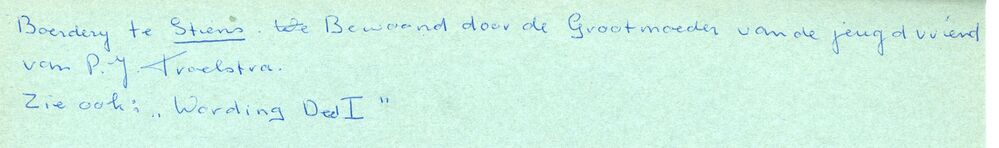 Boerdery te Stiens. Bewoond door de Grootmoeder van de jeugdvriend
van P.J. Troelstra.
Zie ook: „Wording Deel I"